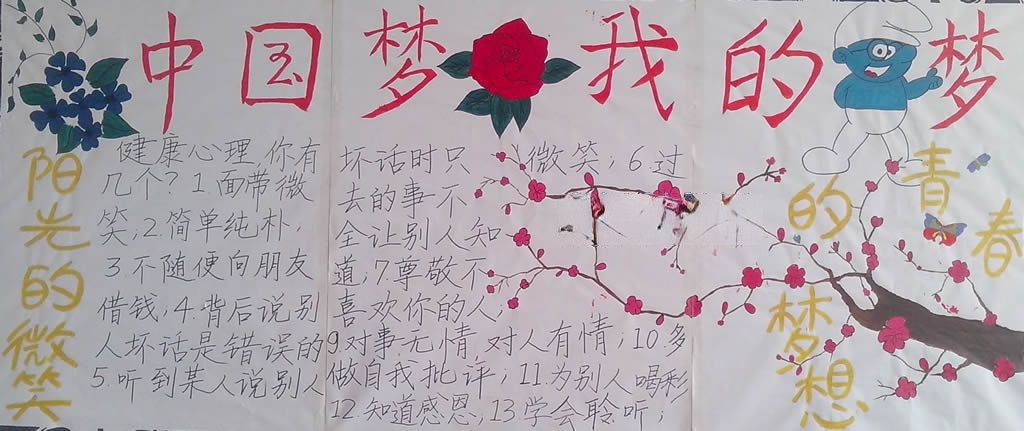 中国梦 我的梦
阳光的微笑
健康心理,你有
几个?1面带微
笑;2.简单纯朴;
3不随便向朋友
借钱;4.背后说别
人坏话是错误的
5.听到某人说别人
坏话时只 微笑;6过
去的事不
全让别人知
道;7.尊敬不
喜欢你的人;
9对事无情,对人有情;10.多
做自我批评;11.为别人喝彩
12.知道感恩,13学会聆听;
青春
的梦想